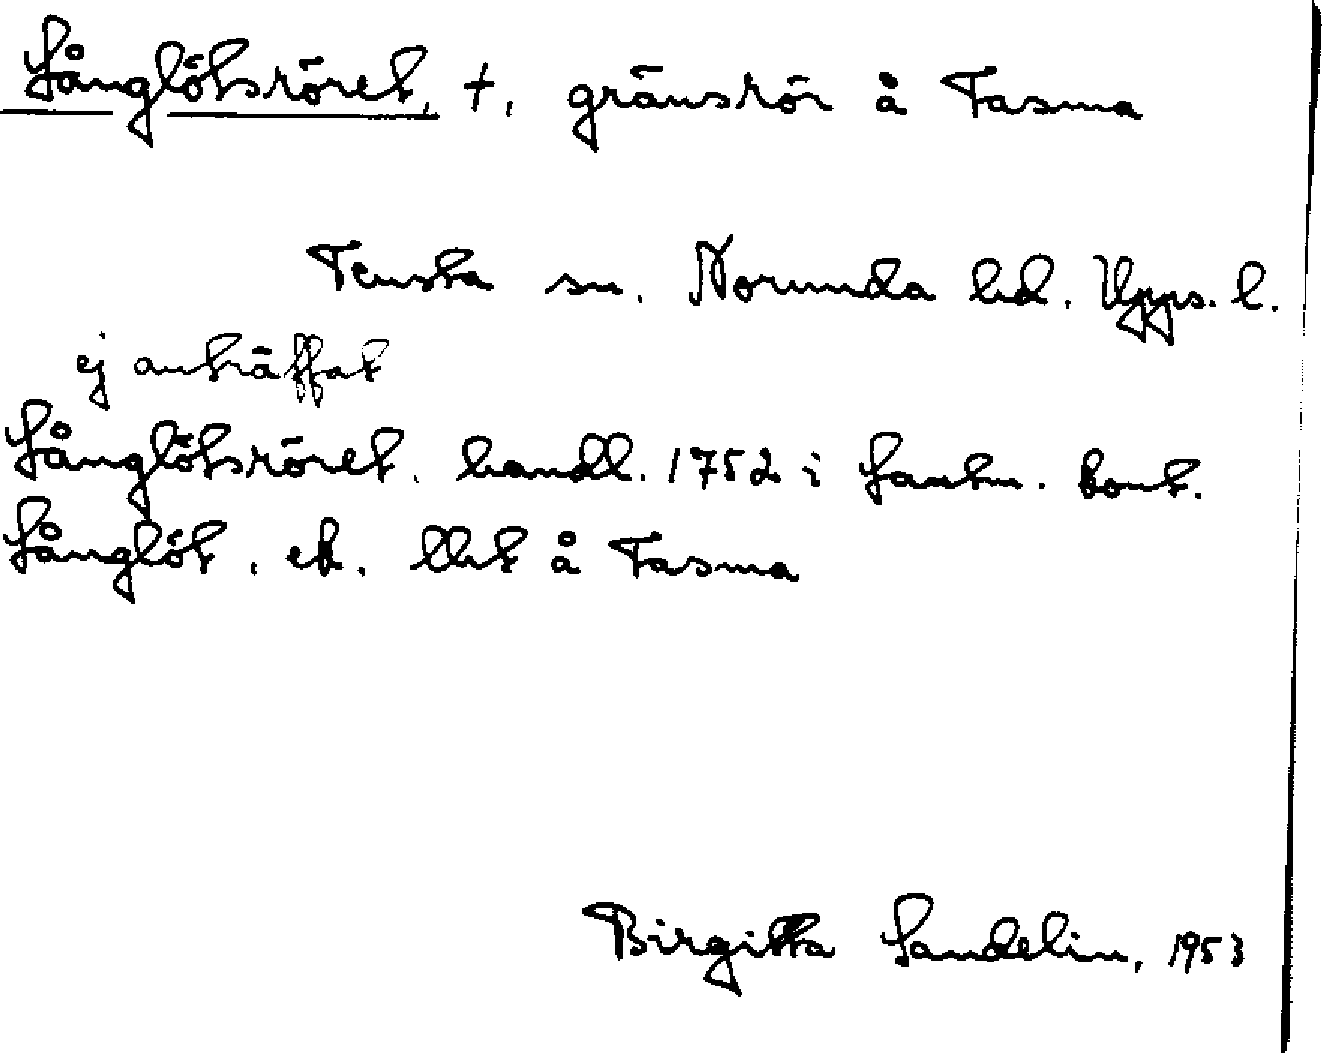 Långlötsröret, †, gränsrör å Tasma
Tensta sn. Norunda hd. Upps. l.
ej anträffat
Långlötsröret. handl. 1752 i Lantm. kont.
Långlöt, ek. blet å Tasma
Birgitta Landelin, 1953